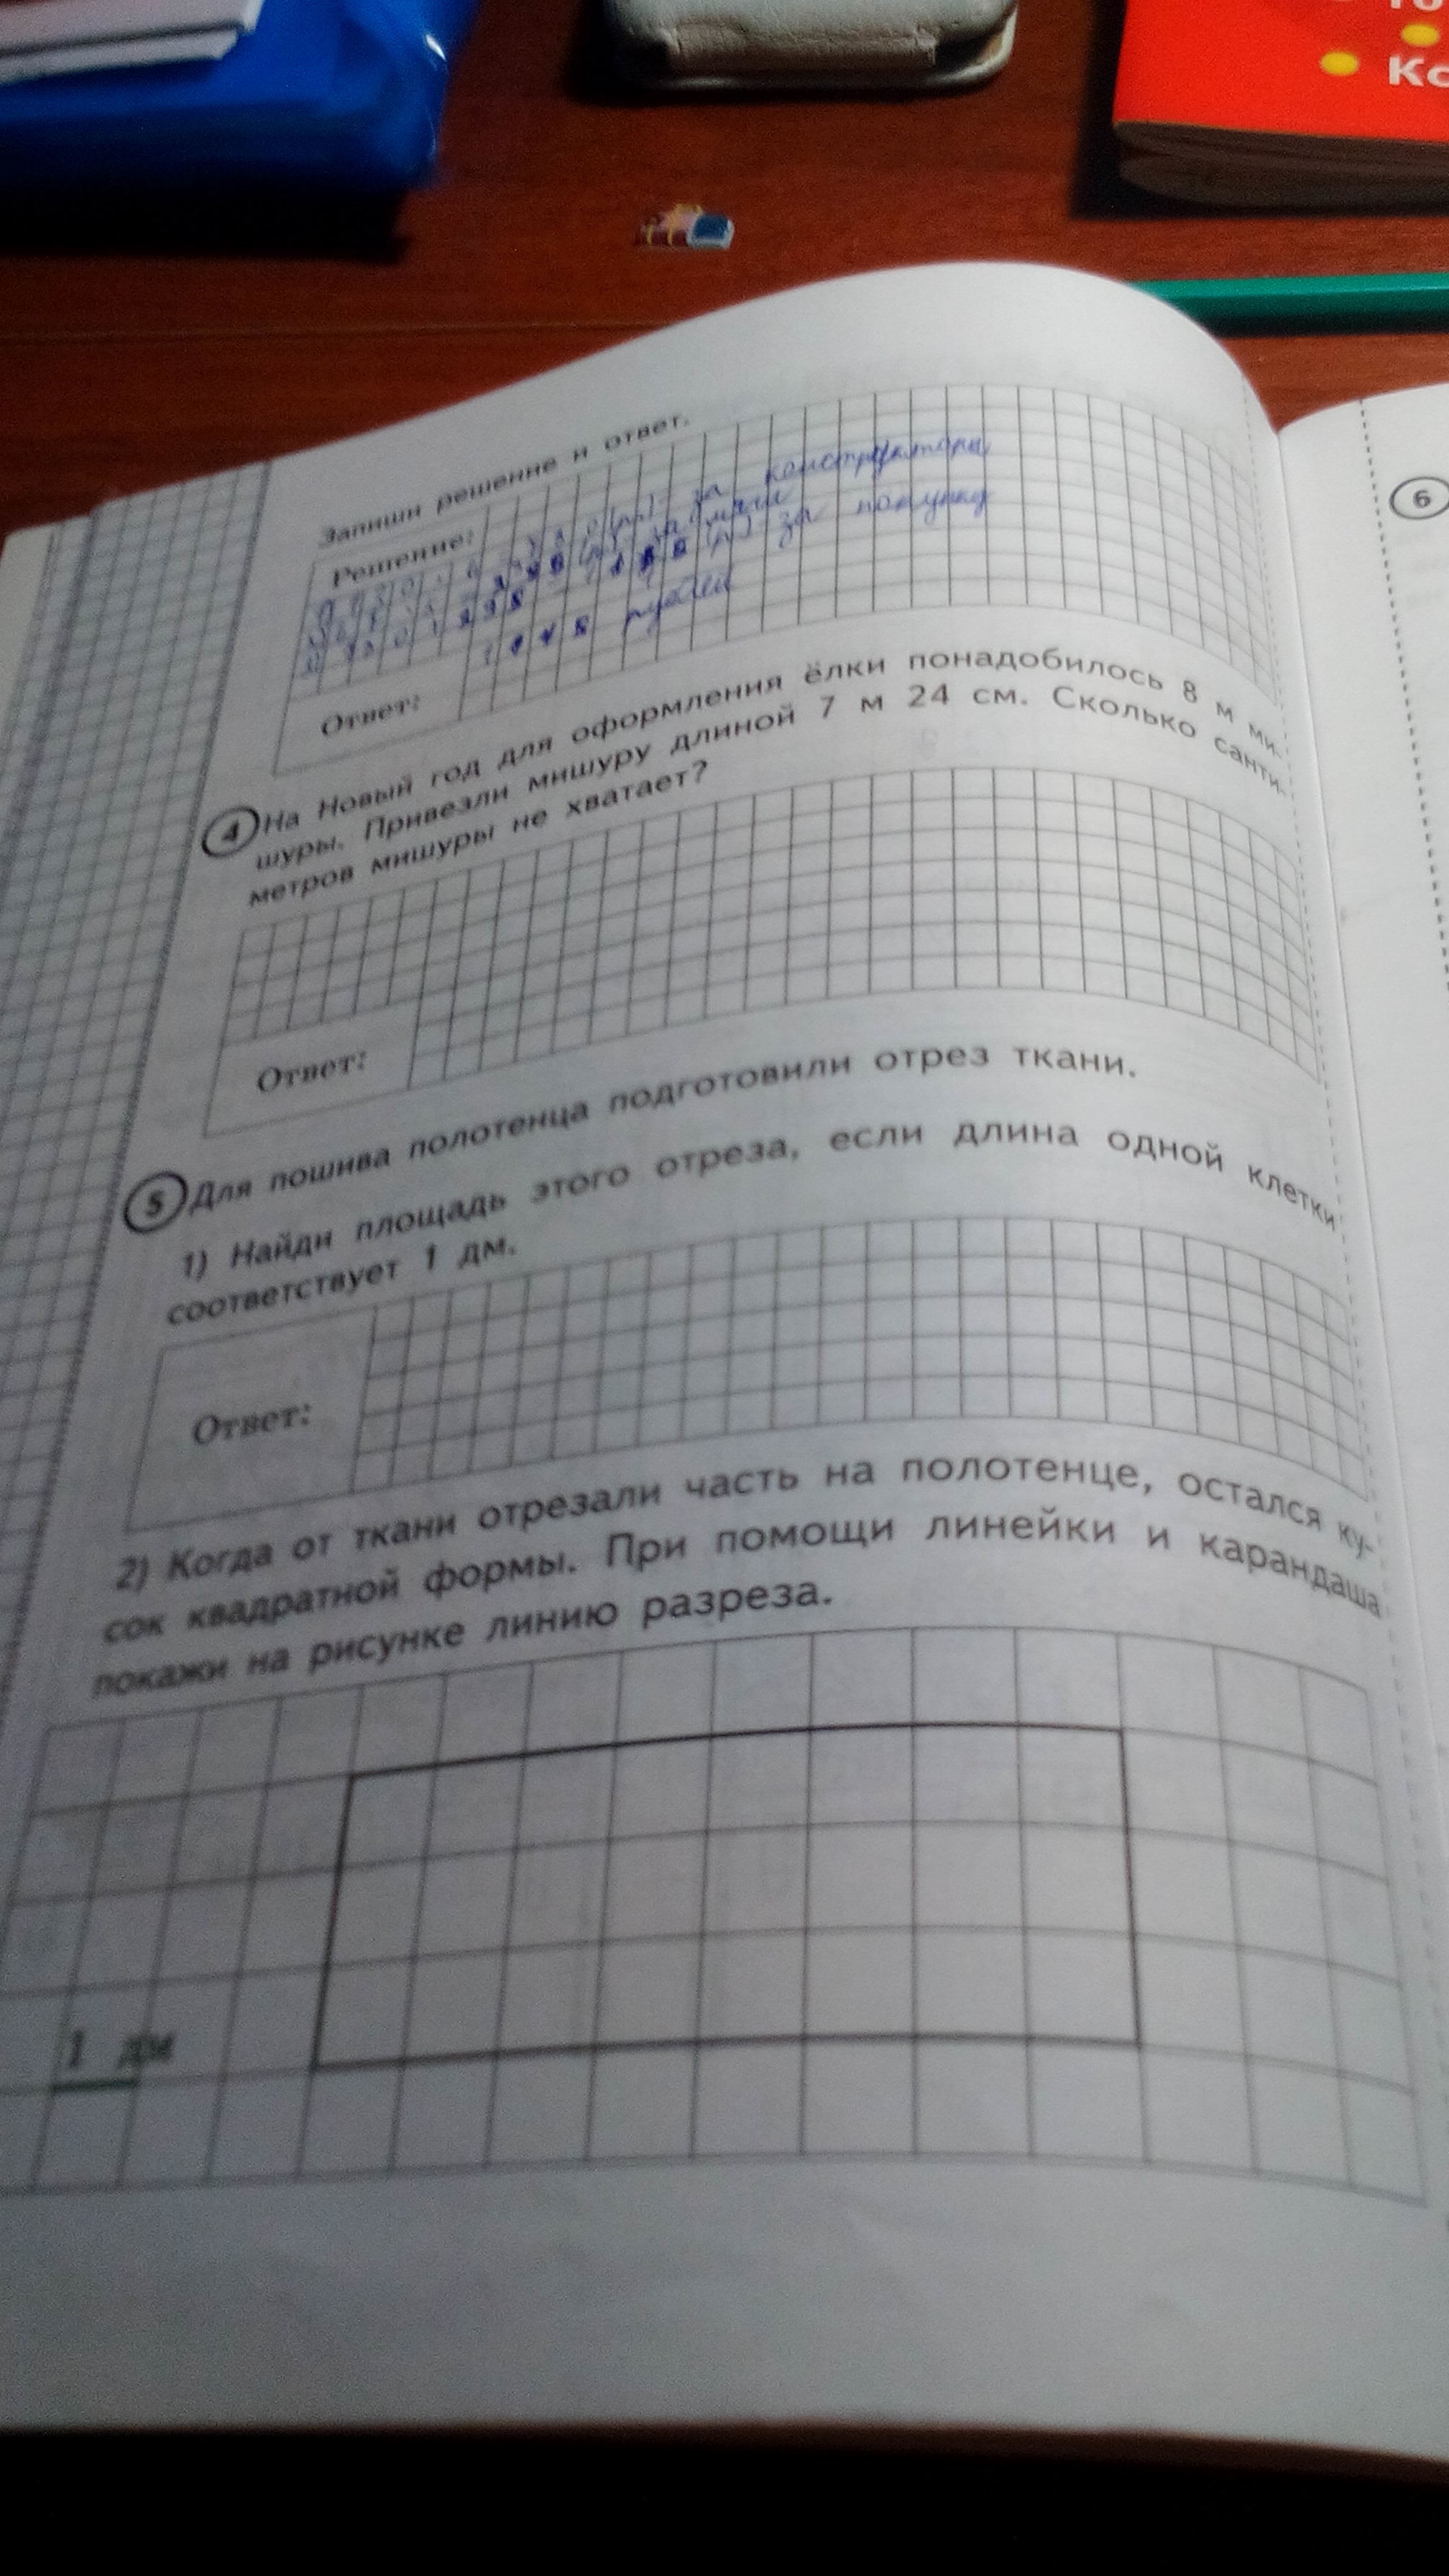 Ко
6
Запиши решение и ответ.
Решение:
за конструкторы
за мячи
за покупку
Ответ: рублей
4 На Новый год для оформления ёлки понадобилось 8 м ми-
шуры. Привезли мишуру длиной 7 м 24 см. Сколько санти-
метров мишуры не хватает?
Ответ:
5 Для пошива полотенца подготовили отрез ткани.
1) Найди площадь этого отреза, если длина одной клетки
соответствует 1 дм.
Ответ:
2) Когда от ткани отрезали часть на полотенце, остался ку-
сок квадратной формы. При помощи линейки и карандаша
покажи на рисунке линию разреза.
1 дм